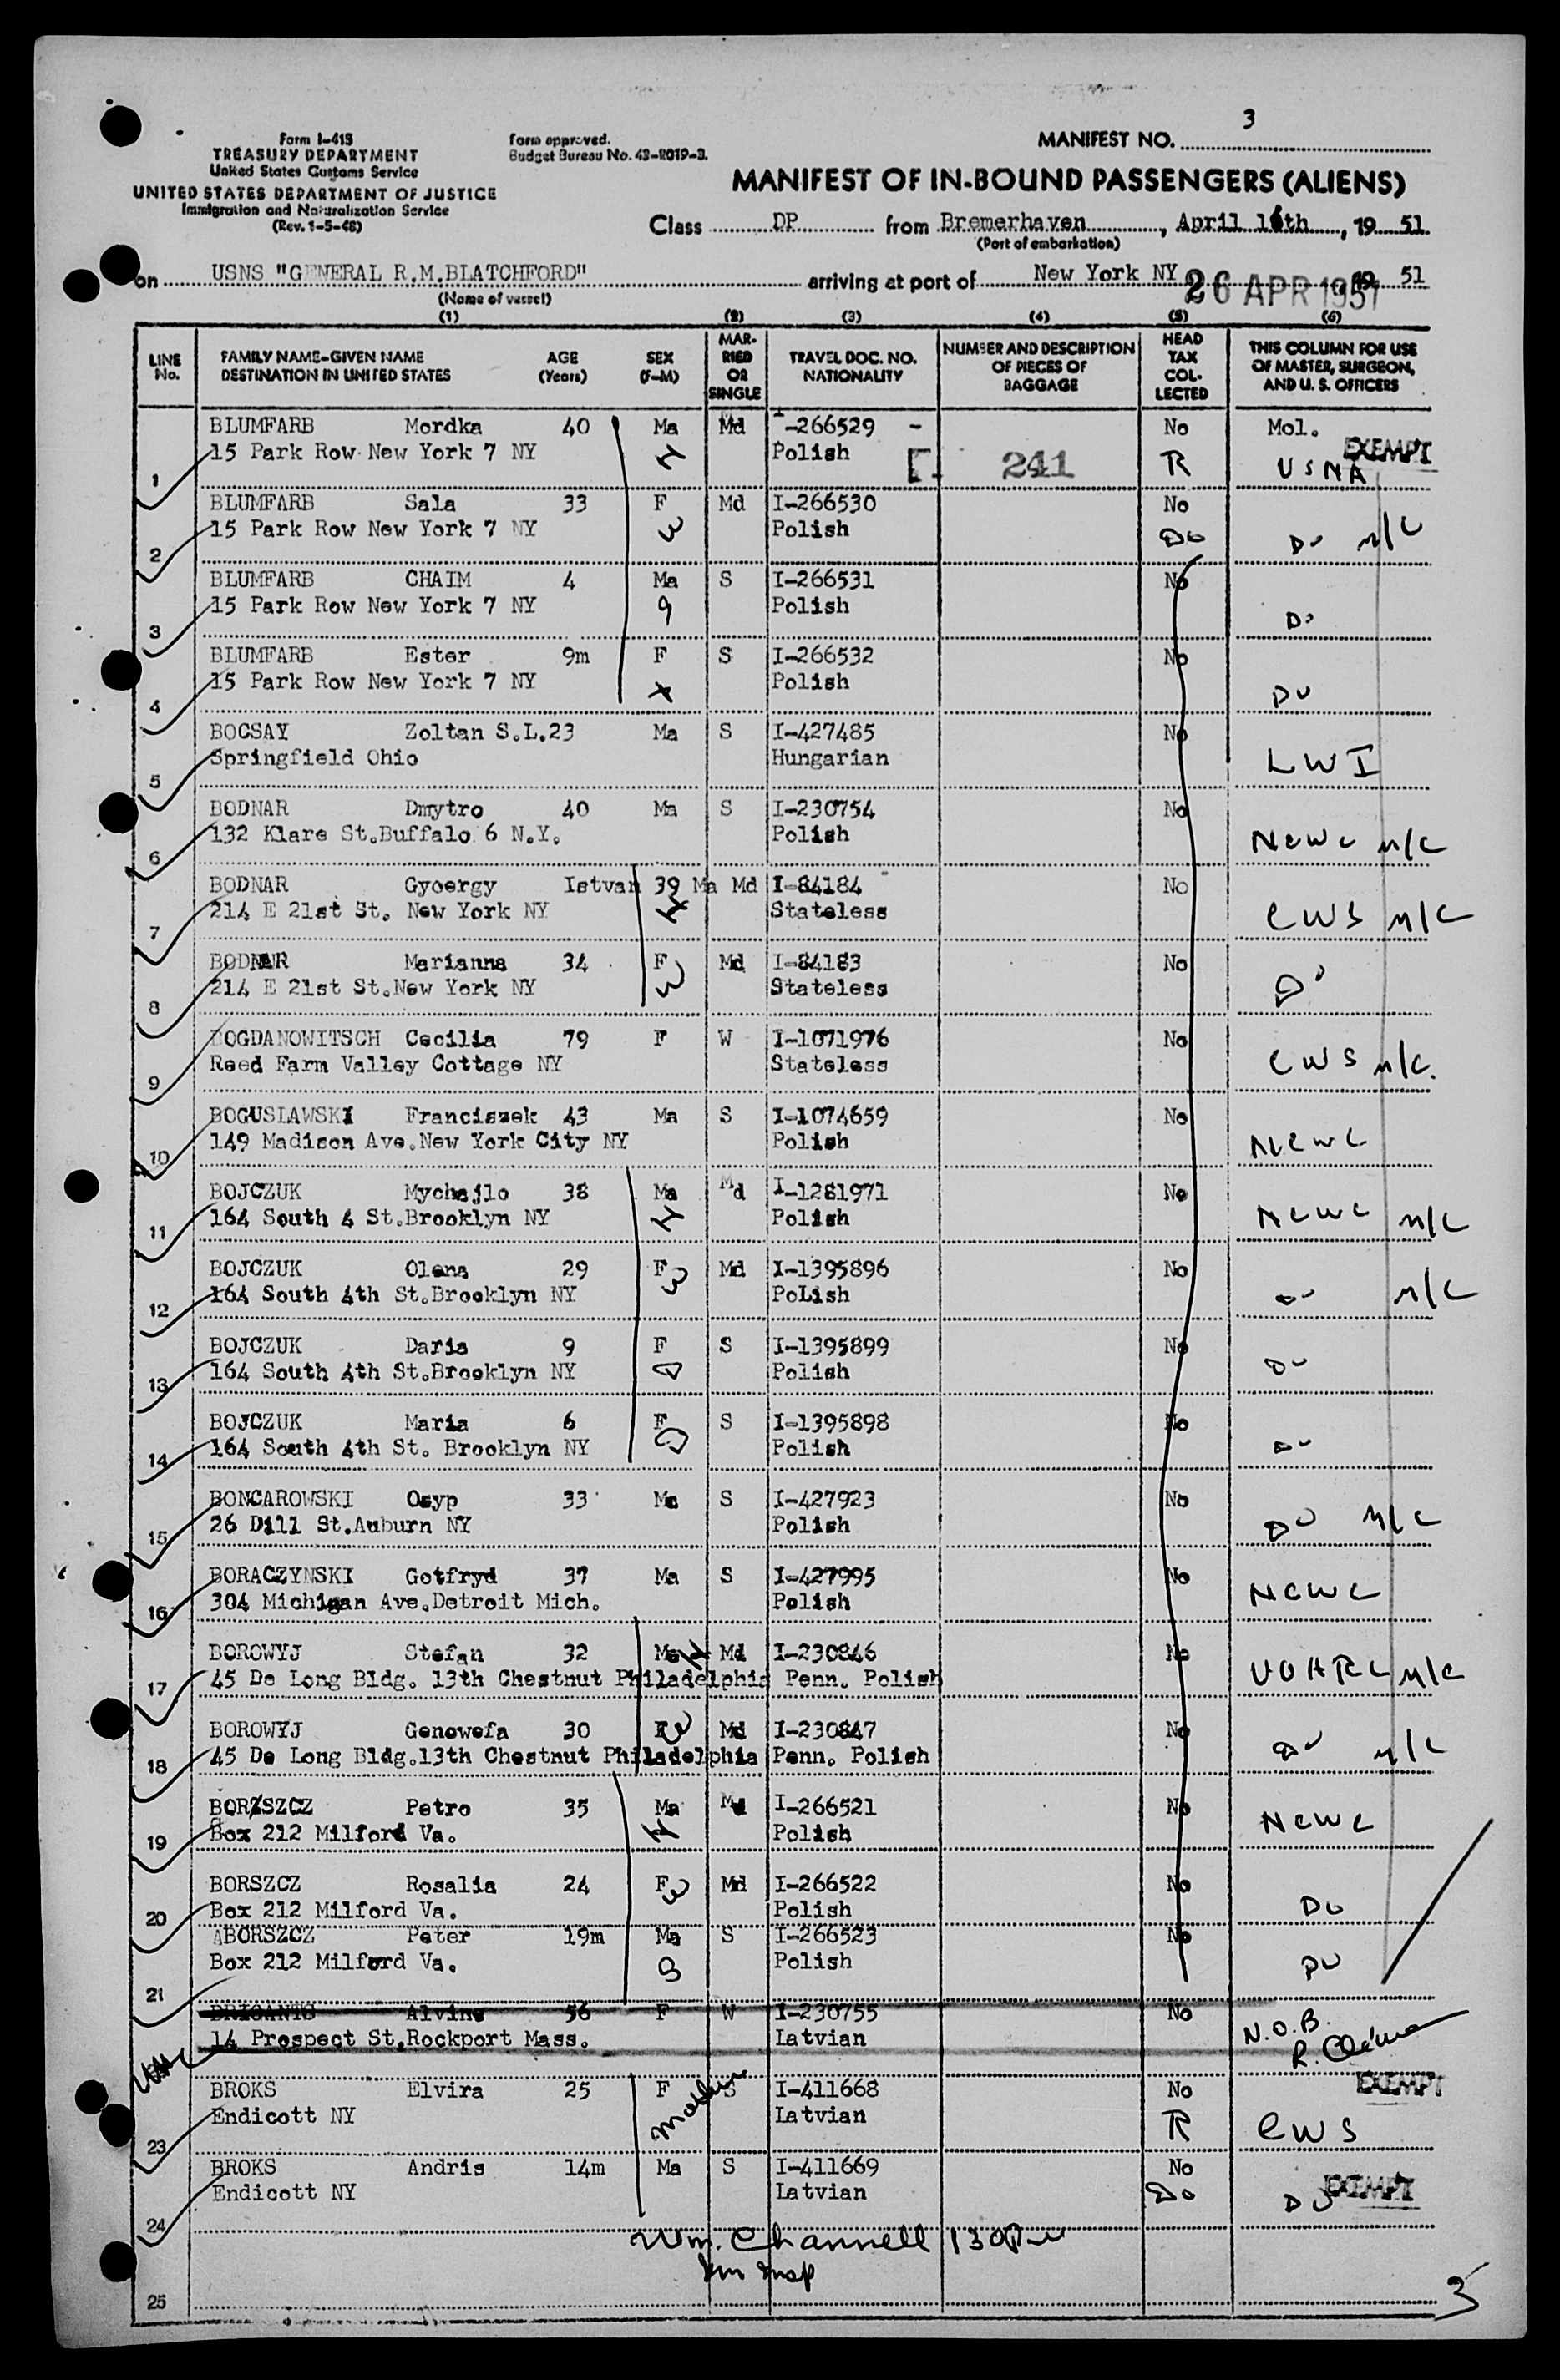 3
MANIFEST NO.
Form I-415
TREASURY DEPARTMENT
United States Customs Service
UNITED STATES DEPARTMENT OF JUSTICE
Immigration and Naturalization Service
(Rev. 1-5-48)
Form approved.
Budget Bureau No. 43-R019-3.
MANIFEST OF IN-BOUND PASSENGERS (ALIENS)
Class DP from Bremerhaven, April 16th, 19 51
(Port of embarkation)
on USNS "GENERAL R.M.BLATCHFORD" arriving at port of New York NY 26 APR 1951 , 19 51
(Name of vessel)
(1) (2) (3) (4) (5) (6)
LINE No. FAMILY NAME-GIVEN NAME DESTINATION IN UNITED STATES AGE (Years) SEX (F-M) MARRIED OR SINGLE TRAVEL DOC. NO. NATIONALITY NUMBER AND DESCRIPTION OF PIECES OF BAGGAGE HEAD TAX COLLECTED THIS COLUMN FOR USE OF MASTER, SURGEON, AND U. S. OFFICERS
BLUMFARB Mordka 40 Ma Md I-266529 - No Mol. EXEMPT
1 15 Park Row New York 7 NY Polish 241 R USNA
BLUMFARB Sala 33 F Md I-266530 No
2 15 Park Row New York 7 NY Polish Do Do n/c
BLUMFARB CHAIM 4 Ma S I-266531 No
3 15 Park Row New York 7 NY Polish Do
BLUMFARB Ester 9m F S I-266532 No
4 15 Park Row New York 7 NY Polish Do
BOCSAY Zoltan S.L.23 Ma S I-427485 No
5 Springfield Ohio Hungarian LWI
BODNAR Dmytro 40 Ma S I-230754 No
6 132 Klare St.Buffalo 6 N.Y. Polish NCWC n/c
BODNAR Gyoergy Istvan 39 Ma Md I-84184 No
7 214 E 21st St. New York NY Stateless CWS n/c
BODNAR Marianna 34 F Md I-84183 No
8 214 E 21st St.New York NY Stateless Do
BOGDANOWITSCH Cecilia 79 F W I-1071976 No
9 Reed Farm Valley Cottage NY Stateless CWS n/c.
BOGUSLAWSKI Franciszek 43 Ma S I-1074659 No
10 149 Madison Ave.New York City NY Polish NCWC
BOJCZUK Mychajlo 38 Ma Md I-1281971 No
11 164 South 4 St.Brooklyn NY Polish NCWC n/c
BOJCZUK Olena 29 F Md I-1395896 No
12 164 South 4th St.Brooklyn NY PoLish Do n/c
BOJCZUK Daria 9 F S I-1395899 No
13 164 South 4th St.Brooklyn NY Polish Do
BOJCZUK Maria 6 F S I-1395898 No
14 164 South 4th St. Brooklyn NY Polish Do
BONCAROWSKI Osyp 33 Ma S I-427923 No
15 26 Dill St.Auburn NY Polish Do n/c
BORACZYNSKI Gotfryd 37 Ma S I-427995 No
16 304 Michigan Ave.Detroit Mich. Polish NCWC
BOROWYJ Stefan 32 Ma Md I-230846 No
17 45 De Long Bldg. 13th Chestnut Philadelphia Penn. Polish UUARC n/c
BOROWYJ Genowefa 30 F Md I-230847 No
18 45 De Long Bldg.13th Chestnut Philadelphia Penn. Polish Do n/c
BORZSZCZ Petro 35 Ma Md I-266521 No
19 Box 212 Milford Va. Polish NCWC
BORSZCZ Rosalia 24 F Md I-266522 No
20 Box 212 Milford Va. Polish Do
BORSZCZ Peter 19m Ma S I-266523 No
21 Box 212 Milford Va. Polish Do
BRIGANTS Alvine 56 F W I-230755 No
14 Prospect St.Rockport Mass. Latvian N.O.B.
BROKS Elvira 25 F Mother S I-411668 No EXEMPT
23 Endicott NY Latvian R CWS
BROKS Andris 14m Ma S I-411669 No EXEMPT
24 Endicott NY Latvian Do Do
Wm. Channell 130 Pm
Im Insp
25
3